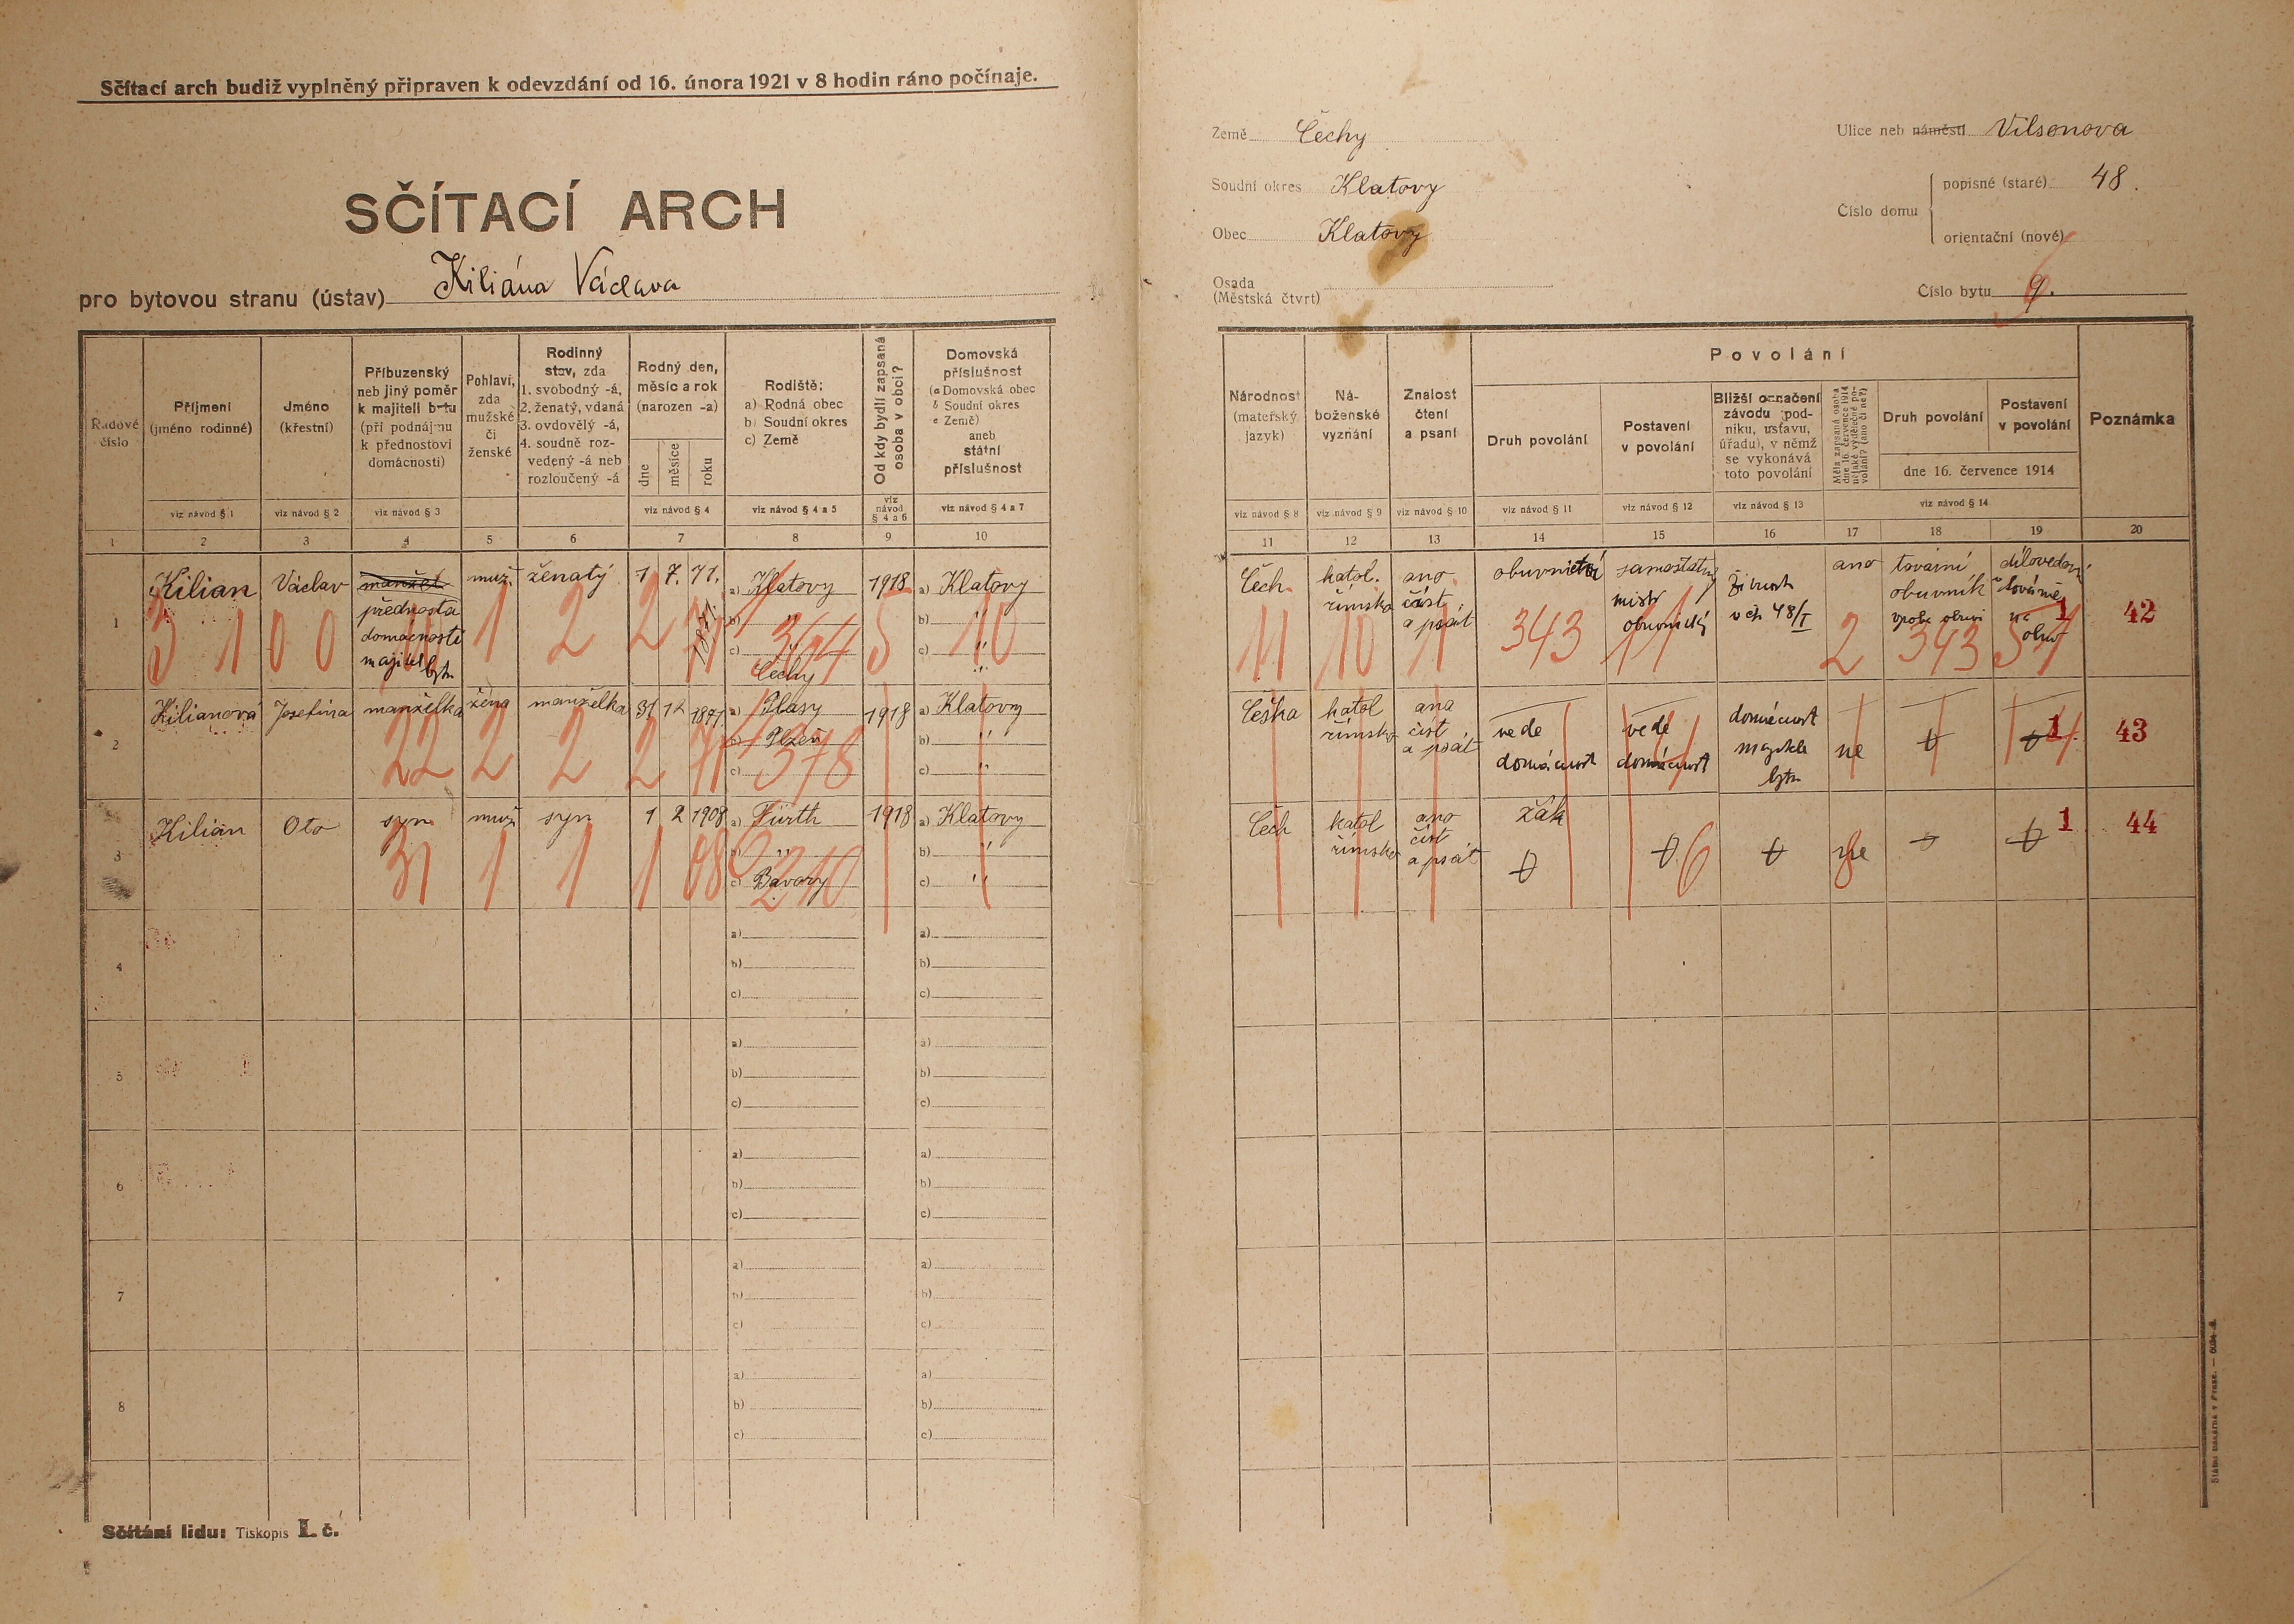 Sčítací arch budiž vyplněný připraven k odevzdání od 16. února 1921 v 8 hodin ráno počínaje.
SČÍTACÍ ARCH
pro bytovou stranu (ústav) Kiliána Václava
Země Čechy
Soudní okres Klatovy
Obec Klatovy
Osada
(Městská čtvrt)
Ulice neb náměstí Vilsonova
Číslo domu
popisné (staré) 48.
orientační (nové)
Číslo bytu 9.
Řadové číslo
Příjmení (jméno rodinné)
Jméno (křestní)
Příbuzenský neb jiný poměr k majiteli bytu (při podnájmu k přednostovi domácnosti)
Pohlaví, zda mužské či ženské
Rodinný stav, zda
1. svobodný -á,
2. ženatý, vdaná
3. ovdovělý -á,
4. soudně rozvedený -á neb rozloučený -á
Rodný den, měsíc a rok (narozen -a)
dne měsíce roku
Rodiště:
a) Rodná obec
b) Soudní okres
c) Země
Od kdy bydlí zapsaná osoba v obci?
Domovská příslušnost
(a Domovská obec
b Soudní okres
c Země)
aneb státní příslušnost
viz návod § 1 viz návod § 2 viz návod § 3 viz návod § 4 viz návod § 4 a 5 viz návod § 4 a 6 viz návod § 4 a 7
1 2 3 4 5 6 7 8 9 10
1 Kilian Václav manžel přednosta domácnosti majitel bytu muž. ženatý 1 7. 71. 1871 a) Klatovy b) " c) " Čechy 1918 a) Klatovy b) " c) "
3 1 0 0 1 2 2 71 364 5 10
2 Kilianová Josefina manželka žena manželka 31 12 1871 a) Plasy b) Plzeň c) 1918 a) Klatovy b) " c) "
22 2 2 2 71 378
3 Kilian Oto syn muž syn 1 2 1908 a) Fürth b) " c) Bavory 1918 a) Klatovy b) " c) "
31 1 1 1 08 210
4 a) b) c) a) b) c)
5 a) b) c) a) b) c)
6 a) b) c) a) b) c)
7 a) b) c) a) b) c)
8 a) b) c) a) b) c)
Sčítání lidu: Tiskopis I. č.
Národnost (mateřský jazyk)
Náboženské vyznání
Znalost čtení a psaní
Povolání
Druh povolání
Postavení v povolání
Bližší označení závodu (podniku, ústavu, úřadu), v němž se vykonává toto povolání
Měla zapsaná osoba dne 16. července 1914 nějaké výdělečné povolání? (ano či ne?)
Druh povolání
Postavení v povolání
dne 16. července 1914
Poznámka
viz návod § 8 viz návod § 9 viz návod § 10 viz návod § 11 viz návod § 12 viz návod § 13 viz návod § 14
11 12 13 14 15 16 17 18 19 20
Čech. katol. římsko ano číst, a psát samostatný mistr obuvnický v čp 48/I ano tovární obuvník 1 42
11 10 1 343 11 2 343
Češka katol římsko ana číst a psát vede domácnost vede domácnost domácnost majitele bytu ne 1 43
Čech katol římsko ano číst a psát žák 6 ne 1 44